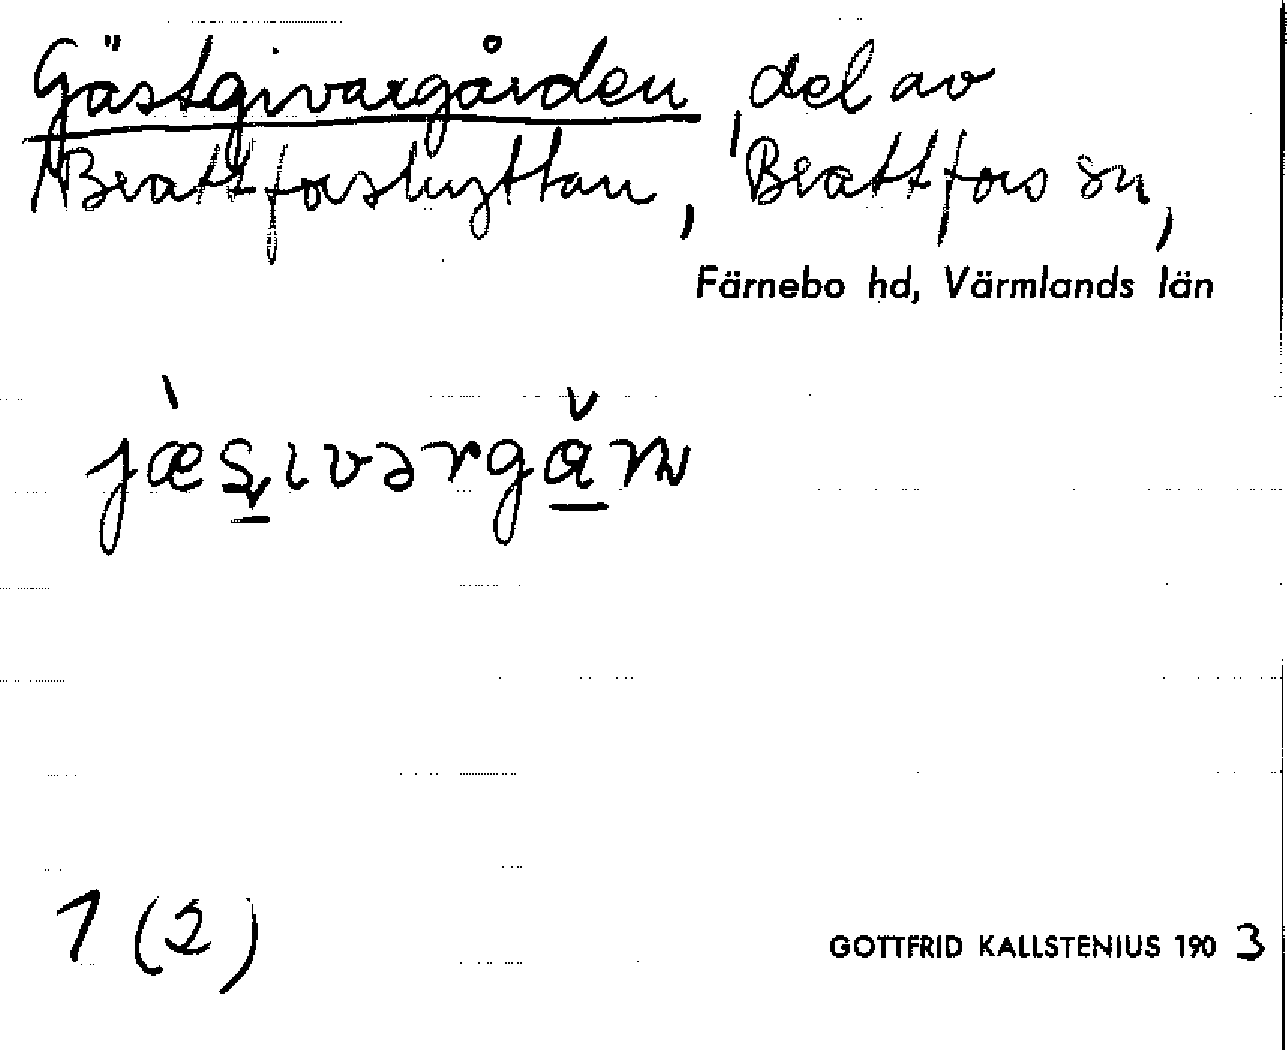 Gästgivargården, del av
Brattforshyttan, Brattfors sn,
Färnebo hd, Värmlands län
1 (2)
GOTTFRID KALLSTENIUS 1903